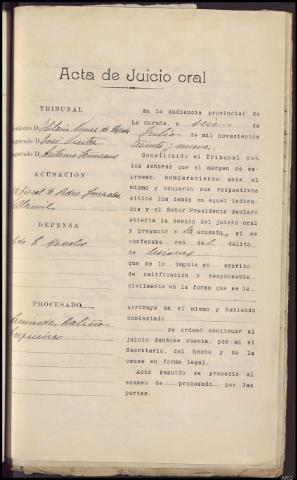 Acta de Juicio oral
TRIBUNAL
sidente D.
gistrado D. José
gistrado D. Antonio
ACUSACIÓN
Fiscal D. Pedro González
DEFENSA
PROCESADO
En la audiencia provincial de
La Coruña, a seis de
Julio de mil novecientos
treinta y nueve.
Constituido el Tribunal con
los señores que al margen se ex-
presan, comparecieron ante el
mismo y ocuparon sus respectivos
sitios los demás en aquel indica-
dos y el Señor Presidente declaró
abierta la sesion del juicio oral
y preguntó a la acusada, si se
confesaba reo del delito
de lesiones
que se le imputa en escrito
de calificación y responsable
civilmente en la forma que se la
atribuye en el mismo y habiendo
contestado
se ordenó continuar el
juicio dándose cuenta, por mi el
Secretario, del hecho y de la
causa en forma legal.
Acto seguido se procedió al
examen de procesado por las
partes.
ARG